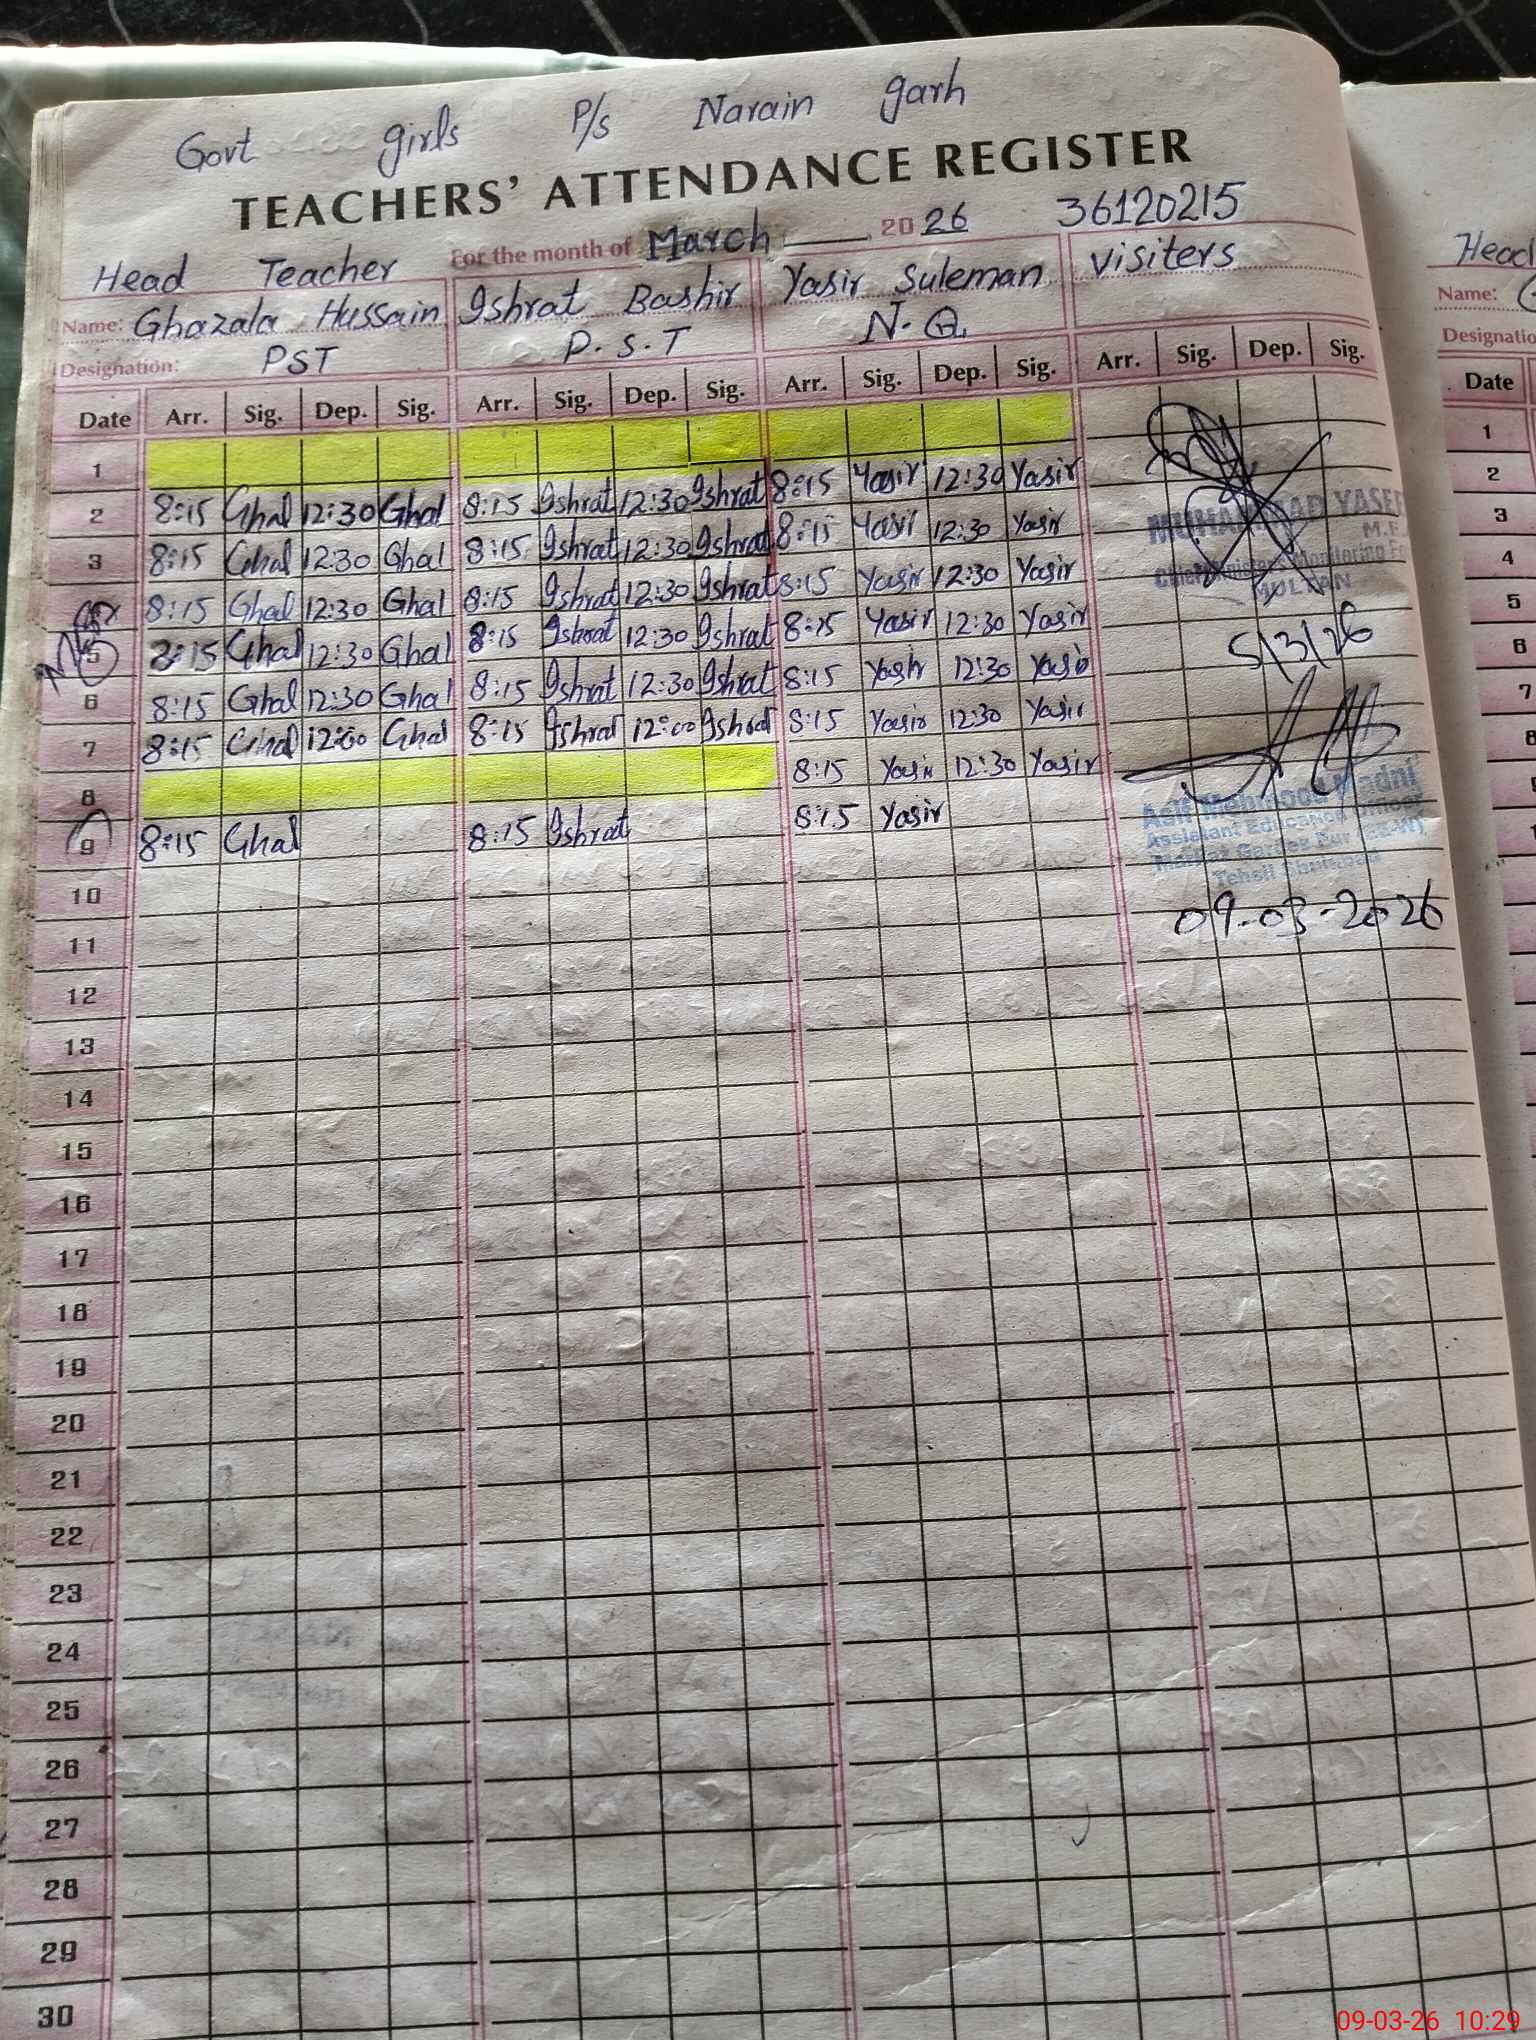 Govt girls P/s Narain garh
TEACHERS' ATTENDANCE REGISTER
For the month of March 2026 36120215
Head Teacher
Name: Ghazala Hussain Ishrat Bashir Yasir Suleman visiters
Designation: PST P.S.T N.Q.
Date Arr. Sig. Dep. Sig. Arr. Sig. Dep. Sig. Arr. Sig. Dep. Sig. Arr. Sig. Dep. Sig.
1
2 8:15 Ghal 12:30 Ghal 8:15 Ishrat 12:30 Ishrat 8:15 Yasir 12:30 Yasir
3 8:15 Ghal 12:30 Ghal 8:15 Ishrat 12:30 Ishrat 8:15 Yasir 12:30 Yasir
4 8:15 Ghal 12:30 Ghal 8:15 Ishrat 12:30 Ishrat 8:15 Yasir 12:30 Yasir
5 8:15 Ghal 12:30 Ghal 8:15 Ishrat 12:30 Ishrat 8:15 Yasir 12:30 Yasir
6 8:15 Ghal 12:30 Ghal 8:15 Ishrat 12:30 Ishrat 8:15 Yasir 12:30 Yasir
7 8:15 Ghal 12:00 Ghal 8:15 Ishrat 12:00 Ishrat 8:15 Yasir 12:30 Yasir
8 8:15 Yasir 12:30 Yasir
9 8:15 Ghal 8:15 Ishrat 8:15 Yasir
MUHAMMAD YASE
Chief Ministers Monitoring
MULTAN
5/3/26
Asif Mehmood Madni
Assistant Education Officer
Tehsil
09-03-2026
10
11
12
13
14
15
16
17
18
19
20
21
22
23
24
25
26
27
28
29
30
Head
Name:
Designatio
Date
1
2
3
4
5
6
7
8
09-03-26 10:29